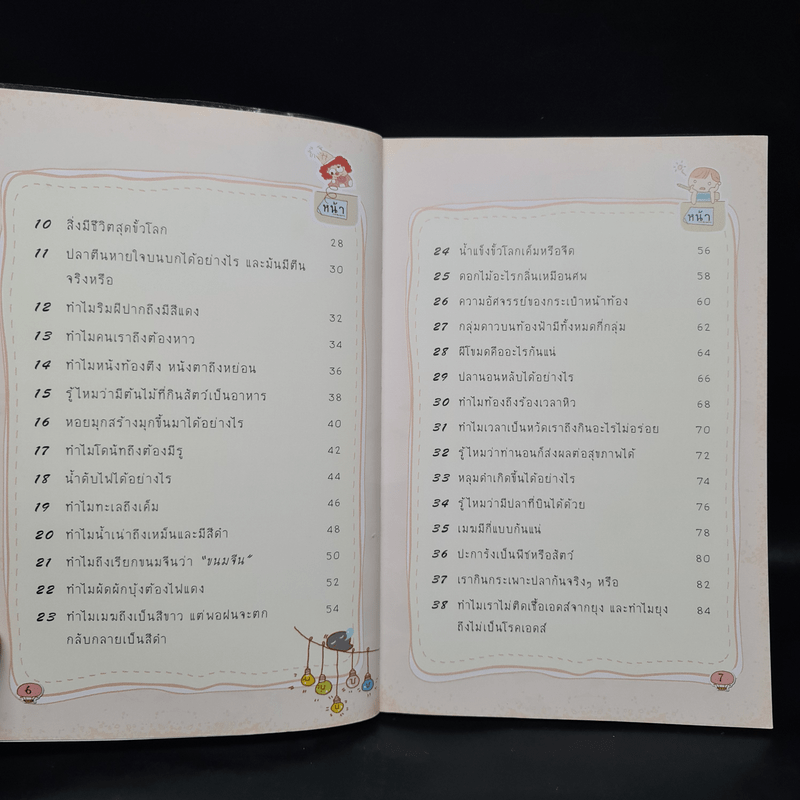 หน้า
10 สิ่งมีชีวิตสุดขั้วโลก 28
11 ปลาตีนหายใจบนบกได้อย่างไร และมันมีตีน 30
จริงหรือ
12 ทำไมริมฝีปากถึงมีสีแดง 32
13 ทำไมคนเราถึงต้องหาว 34
14 ทำไมหนังท้องตึง หนังตาถึงหย่อน 36
15 รู้ไหมว่ามีต้นไม้ที่กินสัตว์เป็นอาหาร 38
16 หอยมุกสร้างมุกขึ้นมาได้อย่างไร 40
17 ทำไมโดนัทถึงต้องมีรู 42
18 น้ำดับไฟได้อย่างไร 44
19 ทำไมทะเลถึงเค็ม 46
20 ทำไมน้ำเน่าถึงเหม็นและมีสีดำ 48
21 ทำไมถึงเรียกขนมจีนว่า "ขนมจีน" 50
22 ทำไมผัดผักบุ้งต้องไฟแดง 52
23 ทำไมเมฆถึงเป็นสีขาว แต่พอฝนจะตก 54
กลับกลายเป็นสีดำ
6
หน้า
24 น้ำแข็งขั้วโลกเค็มหรือจืด 56
25 ดอกไม้อะไรกลิ่นเหมือนศพ 58
26 ความอัศจรรย์ของกระเป๋าหน้าท้อง 60
27 กลุ่มดาวบนท้องฟ้ามีทั้งหมดกี่กลุ่ม 62
28 ผีโขมดคืออะไรกันแน่ 64
29 ปลานอนหลับได้อย่างไร 66
30 ทำไมท้องถึงร้องเวลาหิว 68
31 ทำไมเวลาเป็นหวัดเราถึงกินอะไรไม่อร่อย 70
32 รู้ไหมว่าท่านอนก็ส่งผลต่อสุขภาพได้ 72
33 หลุมดำเกิดขึ้นได้อย่างไร 74
34 รู้ไหมว่ามีปลาที่บินได้ด้วย 76
35 เมฆมีกี่แบบกันแน่ 78
36 ปะการังเป็นพืชหรือสัตว์ 80
37 เรากินกระเพาะปลากันจริงๆ หรือ 82
38 ทำไมเราไม่ติดเชื้อเอดส์จากยุง และทำไมยุง 84
ถึงไม่เป็นโรคเอดส์
7